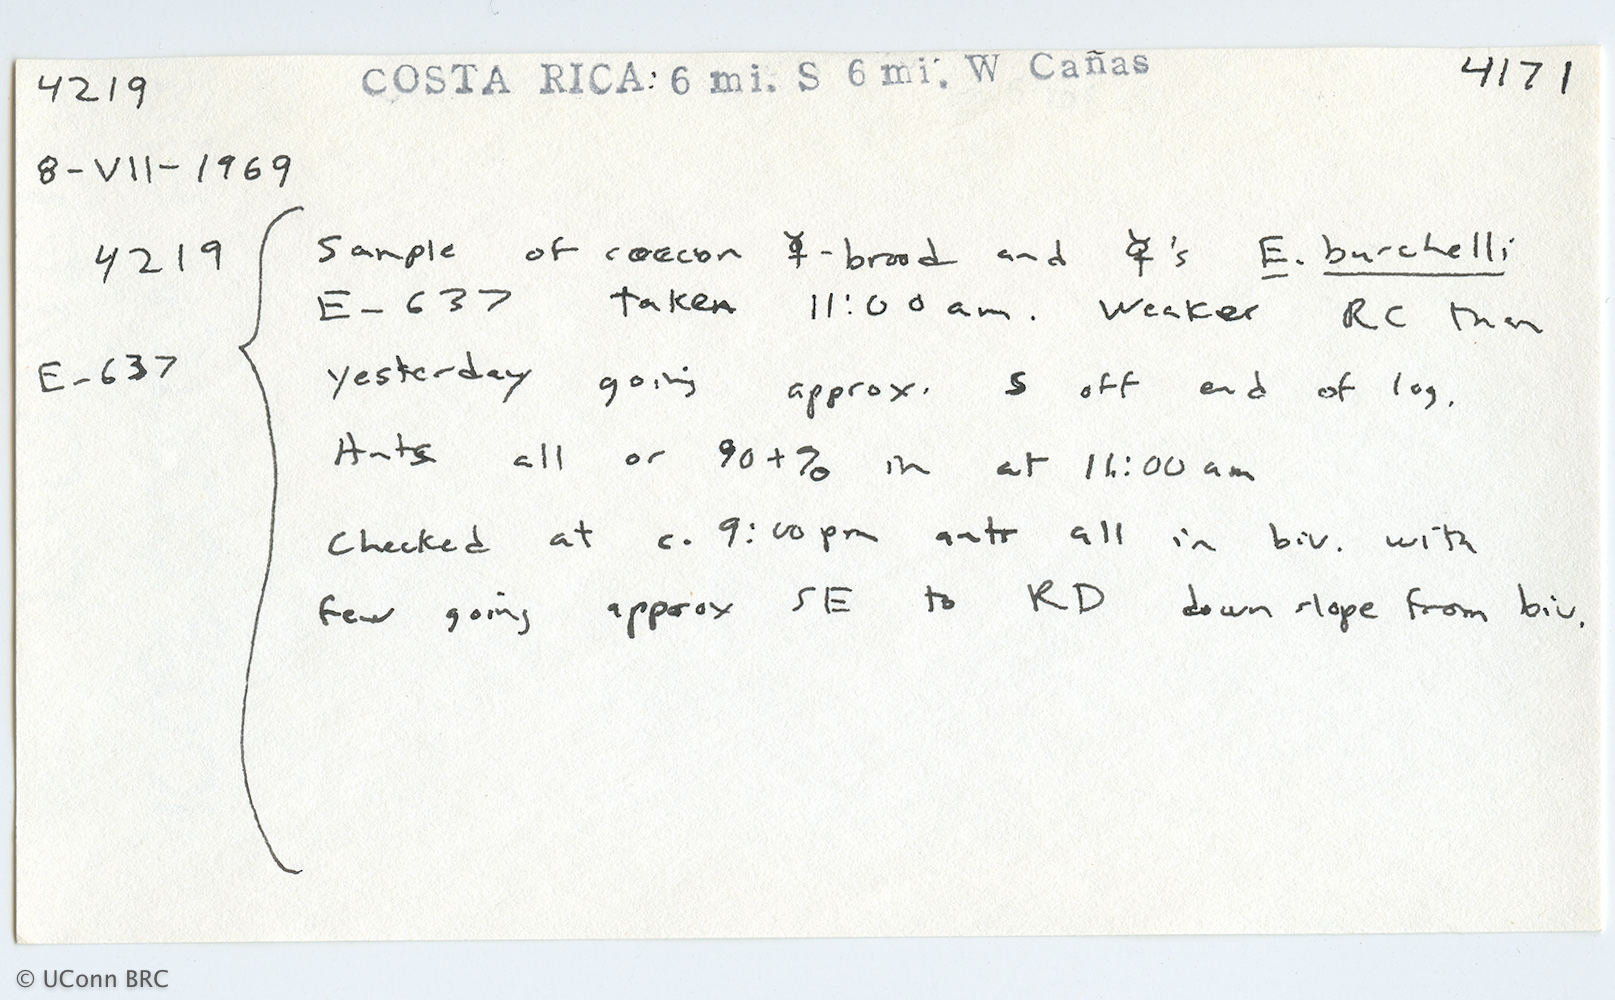 4219 COSTA RICA: 6 mi. S 6 mi. W Cañas 4171
8-VII-1969
4219 Sample of cocoon ☿-brood and ☿'s E. burchelli
E-637 taken 11:00 am. Weaker RC than
E-637 yesterday going approx. S off end of log.
Ants all or 90+% in at 11:00 am
Checked at c. 9:00 pm ants all in biv. with
few going approx SE to RD down slope from biv.
© UConn BRC